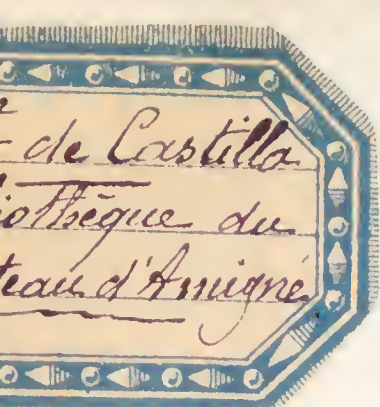 t de Castilla
iothèque du
teau d'Amigné